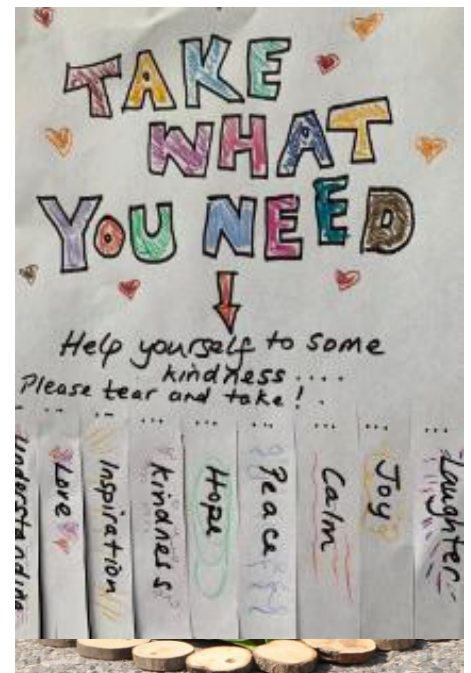 TAKE
WHAT
YOU NEED
Help yourself to some
kindness....
Please tear and take!
Understanding
Love
Inspiration
kindness
Hope
Peace
Calm
Joy
Laughter